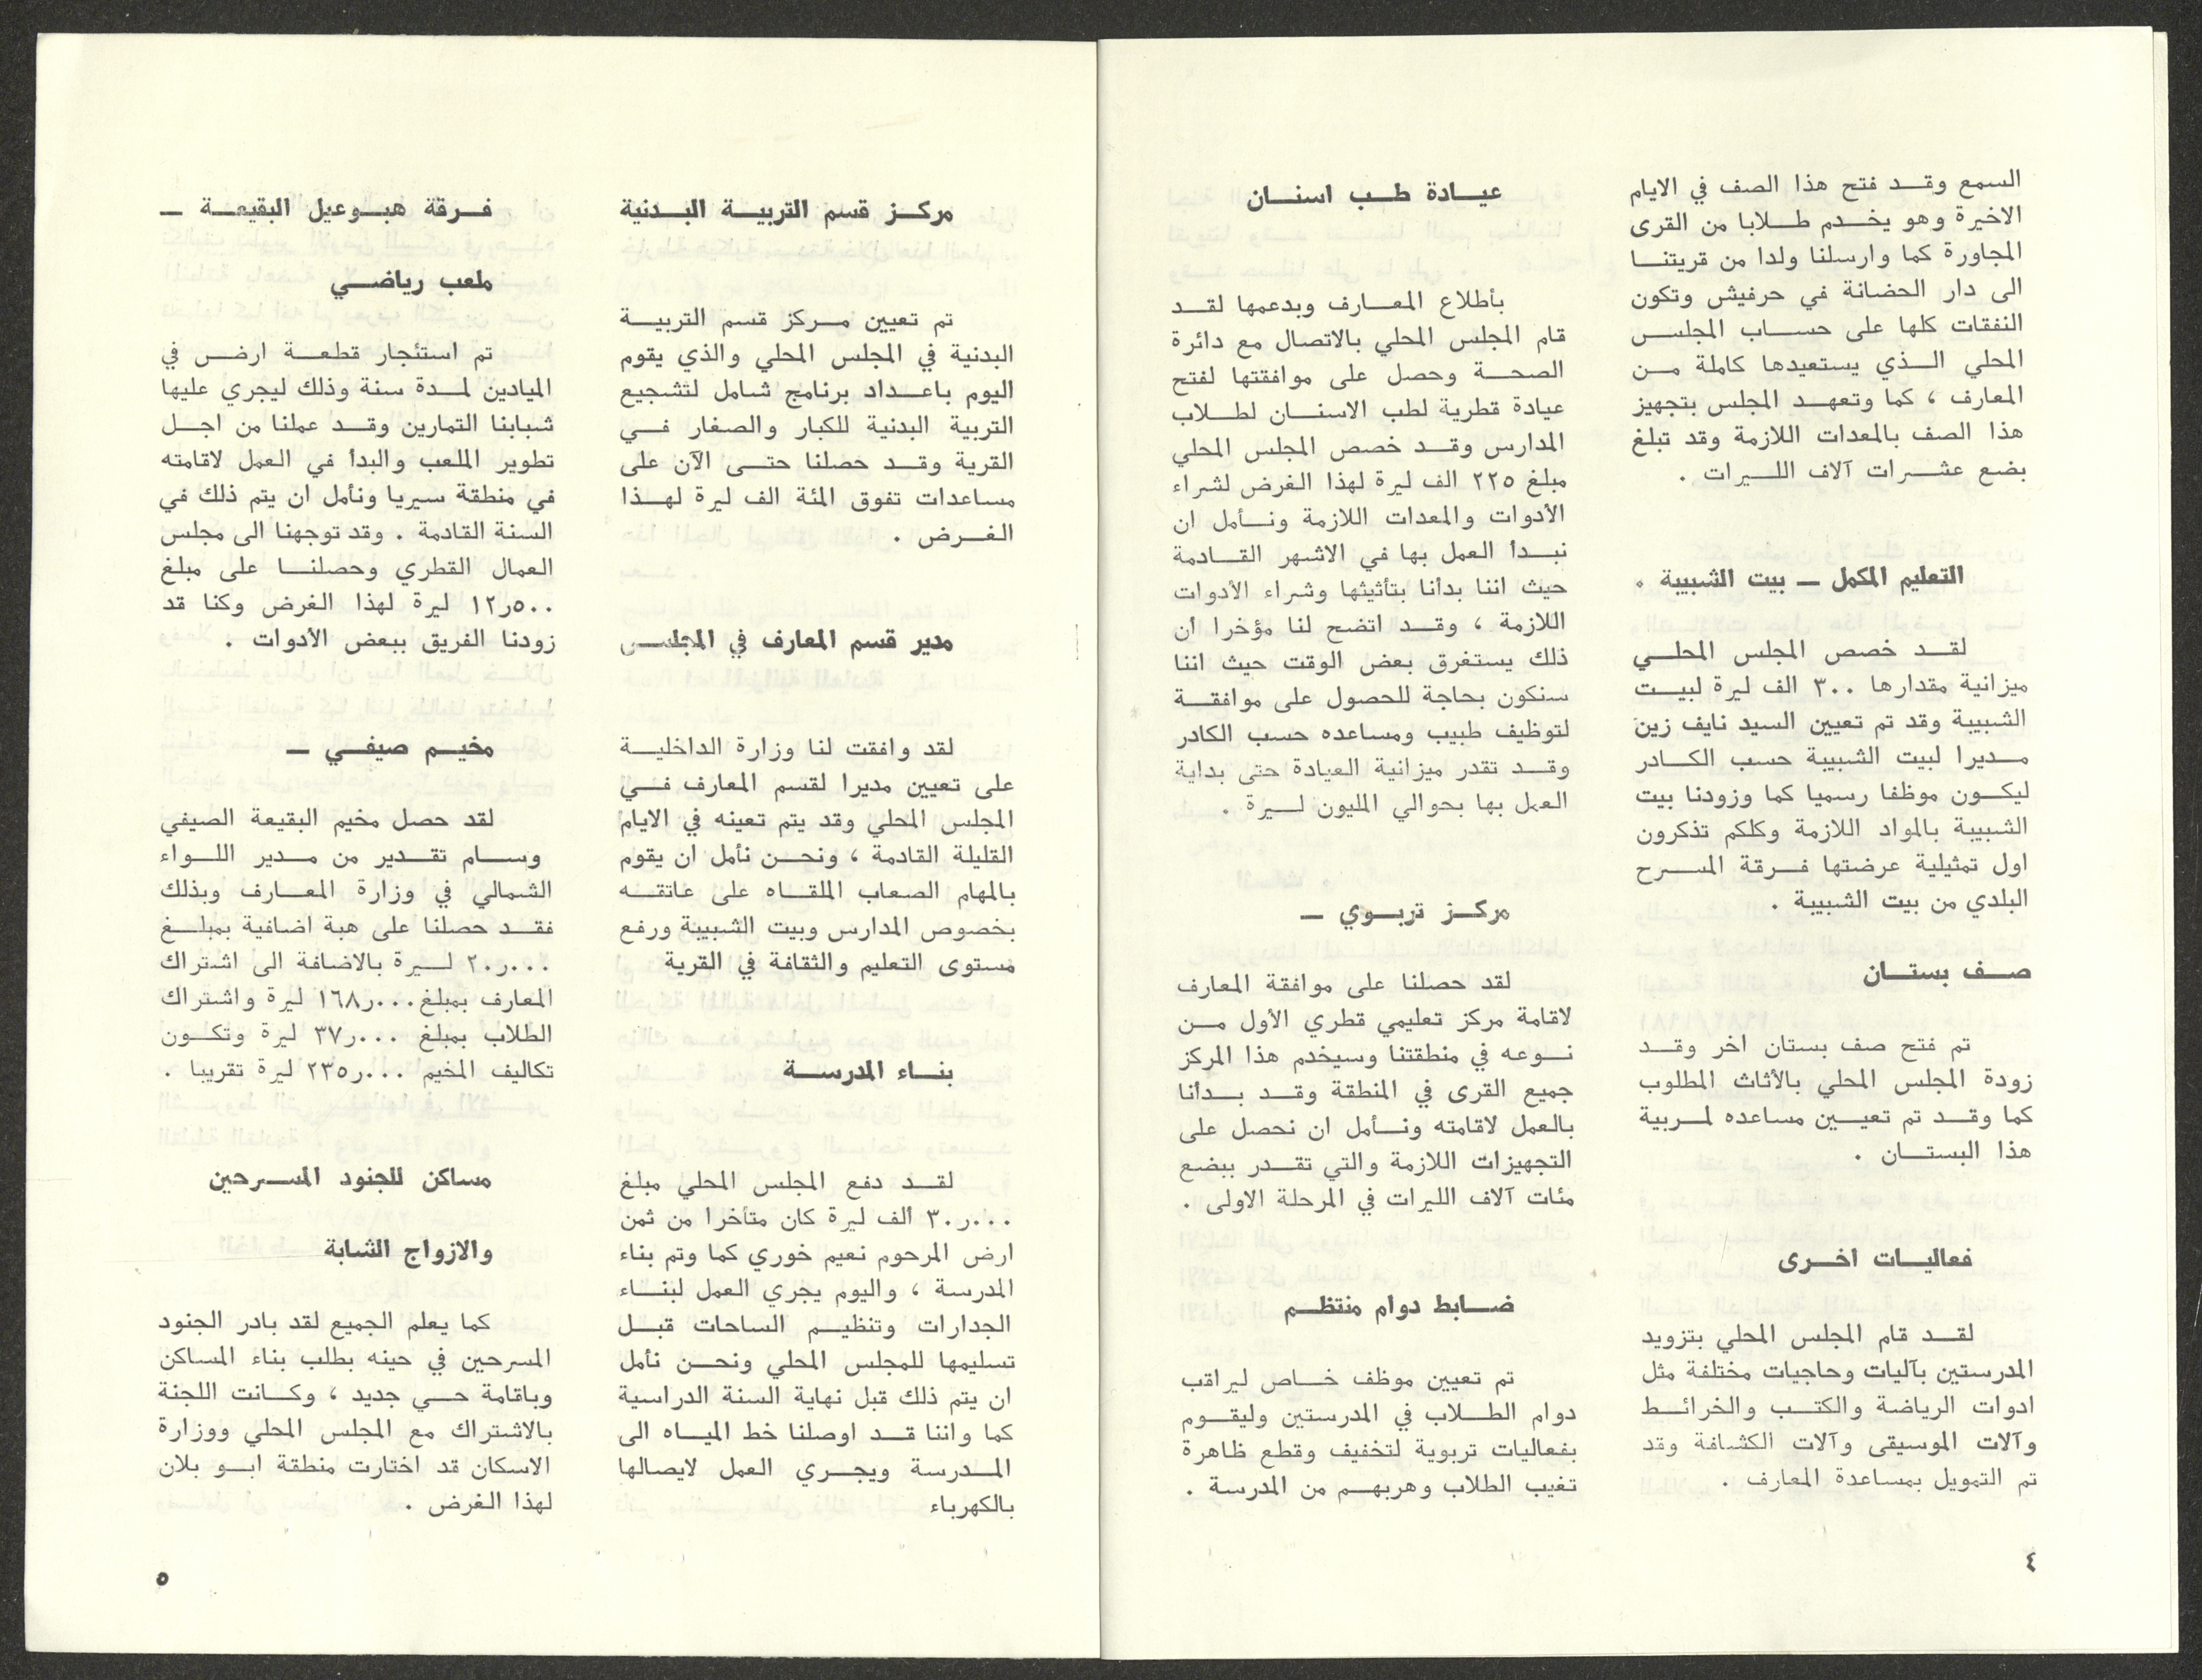 السمع وقد فتح هذا الصف في الايام
الاخيرة وهو يخدم طلابا من القرى
المجاورة كما وارسلنا ولدا من قريتنا
الى دار الحضانة في حرفيش وتكون
النفقات كلها على حساب المجلس
المحلي الذي يستعيدها كاملة من
المعارف ، كما وتعهد المجلس بتجهيز
هذا الصف بالمعدات اللازمة وقد تبلغ
بضع عشرات آلاف الليرات .
التعليم المكمل — بيت الشبيبة .
لقد خصص المجلس المحلي
ميزانية مقدارها ٣٠٠ الف ليرة لبيت
الشبيبة وقد تم تعيين السيد نايف زين
مديرا لبيت الشبيبة حسب الكادر
ليكون موظفا رسميا كما وزودنا بيت
الشبيبة بالمواد اللازمة وكلكم تذكرون
اول تمثيلية عرضتها فرقة المسرح
البلدي من بيت الشبيبة .
صف بستان
تم فتح صف بستان اخر وقد
زودة المجلس المحلي بالأثاث المطلوب
كما وقد تم تعيين مساعده لمربية
هذا البستان .
فعاليات اخرى
لقد قام المجلس المحلي بتزويد
المدرستين بآليات وحاجيات مختلفة مثل
ادوات الرياضة والكتب والخرائط
وآلات الموسيقى وآلات الكشافة وقد
تم التمويل بمساعدة المعارف .
٤
عيادة طب اسنان
بأطلاع المعارف وبدعمها لقد
قام المجلس المحلي بالاتصال مع دائرة
الصحة وحصل على موافقتها لفتح
عيادة قطرية لطب الاسنان لطلاب
المدارس وقد خصص المجلس المحلي
مبلغ ٢٢٥ الف ليرة لهذا الغرض لشراء
الأدوات والمعدات اللازمة ونأمل ان
نبدأ العمل بها في الاشهر القادمة
حيث اننا بدأنا بتأثيثها وشراء الأدوات
اللازمة ، وقد اتضح لنا مؤخرا ان
ذلك يستغرق بعض الوقت حيث اننا
سنكون بحاجة للحصول على موافقة
لتوظيف طبيب ومساعده حسب الكادر
وقد تقدر ميزانية العيادة حتى بداية
العمل بها بحوالي المليون ليرة .
مركز تربوي —
لقد حصلنا على موافقة المعارف
لاقامة مركز تعليمي قطري الأول من
نوعه في منطقتنا وسيخدم هذا المركز
جميع القرى في المنطقة وقد بدأنا
بالعمل لاقامته ونأمل ان نحصل على
التجهيزات اللازمة والتي تقدر ببضع
مئات آلاف الليرات في المرحلة الاولى .
ضابط دوام منتظم
تم تعيين موظف خاص ليراقب
دوام الطلاب في المدرستين وليقوم
بفعاليات تربوية لتخفيف وقطع ظاهرة
تغيب الطلاب وهربهم من المدرسة .
مركز قسم التربية البدنية
تم تعيين مركز قسم التربية
البدنية في المجلس المحلي والذي يقوم
اليوم باعداد برنامج شامل لتشجيع
التربية البدنية للكبار والصغار في
القرية وقد حصلنا حتى الآن على
مساعدات تفوق المئة الف ليرة لهذا
الغرض .
مدير قسم المعارف في المجلس
لقد وافقت لنا وزارة الداخلية
على تعيين مديرا لقسم المعارف في
المجلس المحلي وقد يتم تعينه في الايام
القليلة القادمة ، ونحن نأمل ان يقوم
بالمهام الصعاب الملقاه على عاتقه
بخصوص المدارس وبيت الشبيبة ورفع
مستوى التعليم والثقافة في القرية
بناء المدرسة
لقد دفع المجلس المحلي مبلغ
٣٠ر٠٠٠ ألف ليرة كان متأخرا من ثمن
ارض المرحوم نعيم خوري كما وتم بناء
المدرسة ، واليوم يجري العمل لبناء
الجدارات وتنظيم الساحات قبل
تسليمها للمجلس المحلي ونحن نأمل
ان يتم ذلك قبل نهاية السنة الدراسية
كما واننا قد اوصلنا خط المياه الى
المدرسة ويجري العمل لايصالها
بالكهرباء
فرقة هبوعيل البقيعة —
ملعب رياضي
تم استئجار قطعة ارض في
الميادين لمدة سنة وذلك ليجري عليها
شبابنا التمارين وقد عملنا من اجل
تطوير الملعب والبدأ في العمل لاقامته
في منطقة سيريا ونأمل ان يتم ذلك في
السنة القادمة . وقد توجهنا الى مجلس
العمال القطري وحصلنا على مبلغ
١٢ر٥٠٠ ليرة لهذا الغرض وكنا قد
زودنا الفريق ببعض الأدوات .
مخيم صيفي —
لقد حصل مخيم البقيعة الصيفي
وسام تقدير من مدير اللواء
الشمالي في وزارة المعارف وبذلك
فقد حصلنا على هبة اضافية بمبلغ
٢٠ر٠٠٠ ليرة بالاضافة الى اشتراك
المعارف بمبلغ ١٦٨ر٠٠٠ ليرة واشتراك
الطلاب بمبلغ ٣٧ر٠٠٠ ليرة وتكون
تكاليف المخيم ٢٣٥ر٠٠٠ ليرة تقريبا .
مساكن للجنود المسرحين
والازواج الشابة
كما يعلم الجميع لقد بادر الجنود
المسرحين في حينه بطلب بناء المساكن
وباقامة حي جديد ، وكانت اللجنة
بالاشتراك مع المجلس المحلي ووزارة
الاسكان قد اختارت منطقة ابو بلان
لهذا الغرض .
٥